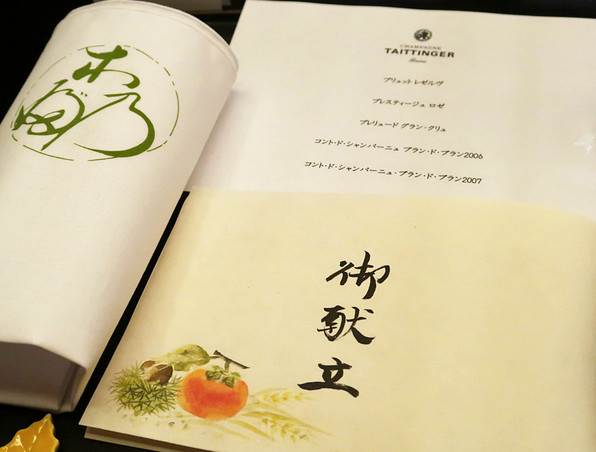 木乃婦
CHAMPAGNE
TAITTINGER
Reims
ブリュット レゼルヴ
プレスティージュ ロゼ
プレリュード グラン・クリュ
コント・ド・シャンパーニュ ブラン・ド・ブラン2006
コント・ド・シャンパーニュ・ブラン・ド・ブラン2007
御献立